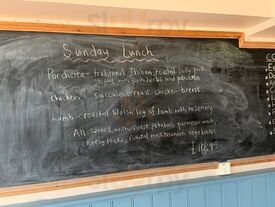 Sunday Lunch
Porchetta - traditional Italian, roasted belly pork
stuffed with fresh herbs and pancetta
Chicken - succulent roast chicken breast
Lamb - roasted Welsh leg of lamb with rosemary
All served with roast potatoes, parmesan mash,
cheesy leeks, roasted mediterranean vegetables
£10.95